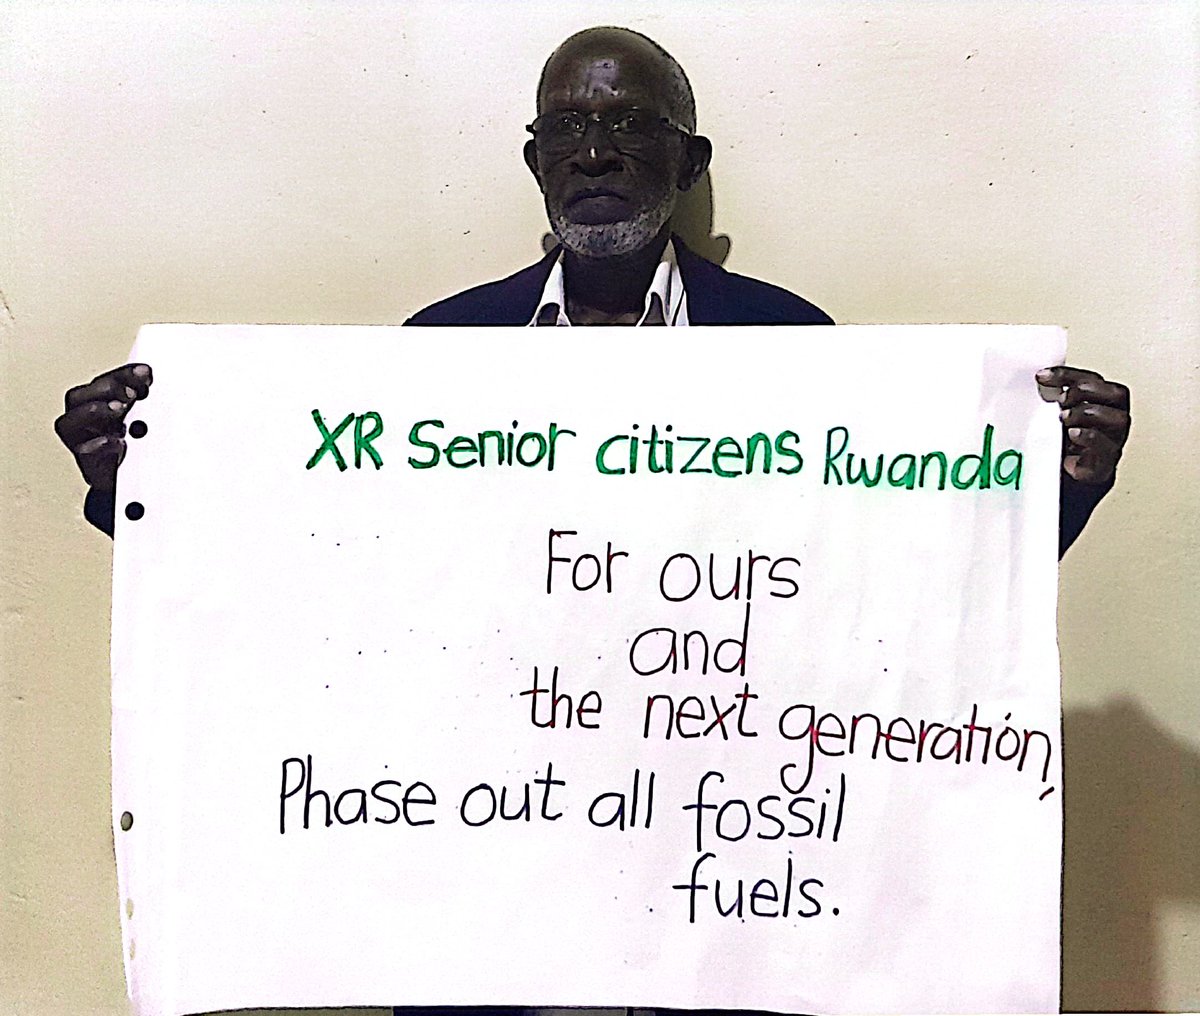 XR Senior citizens Rwanda
For ours
and
the next generation,
Phase out all fossil
fuels.